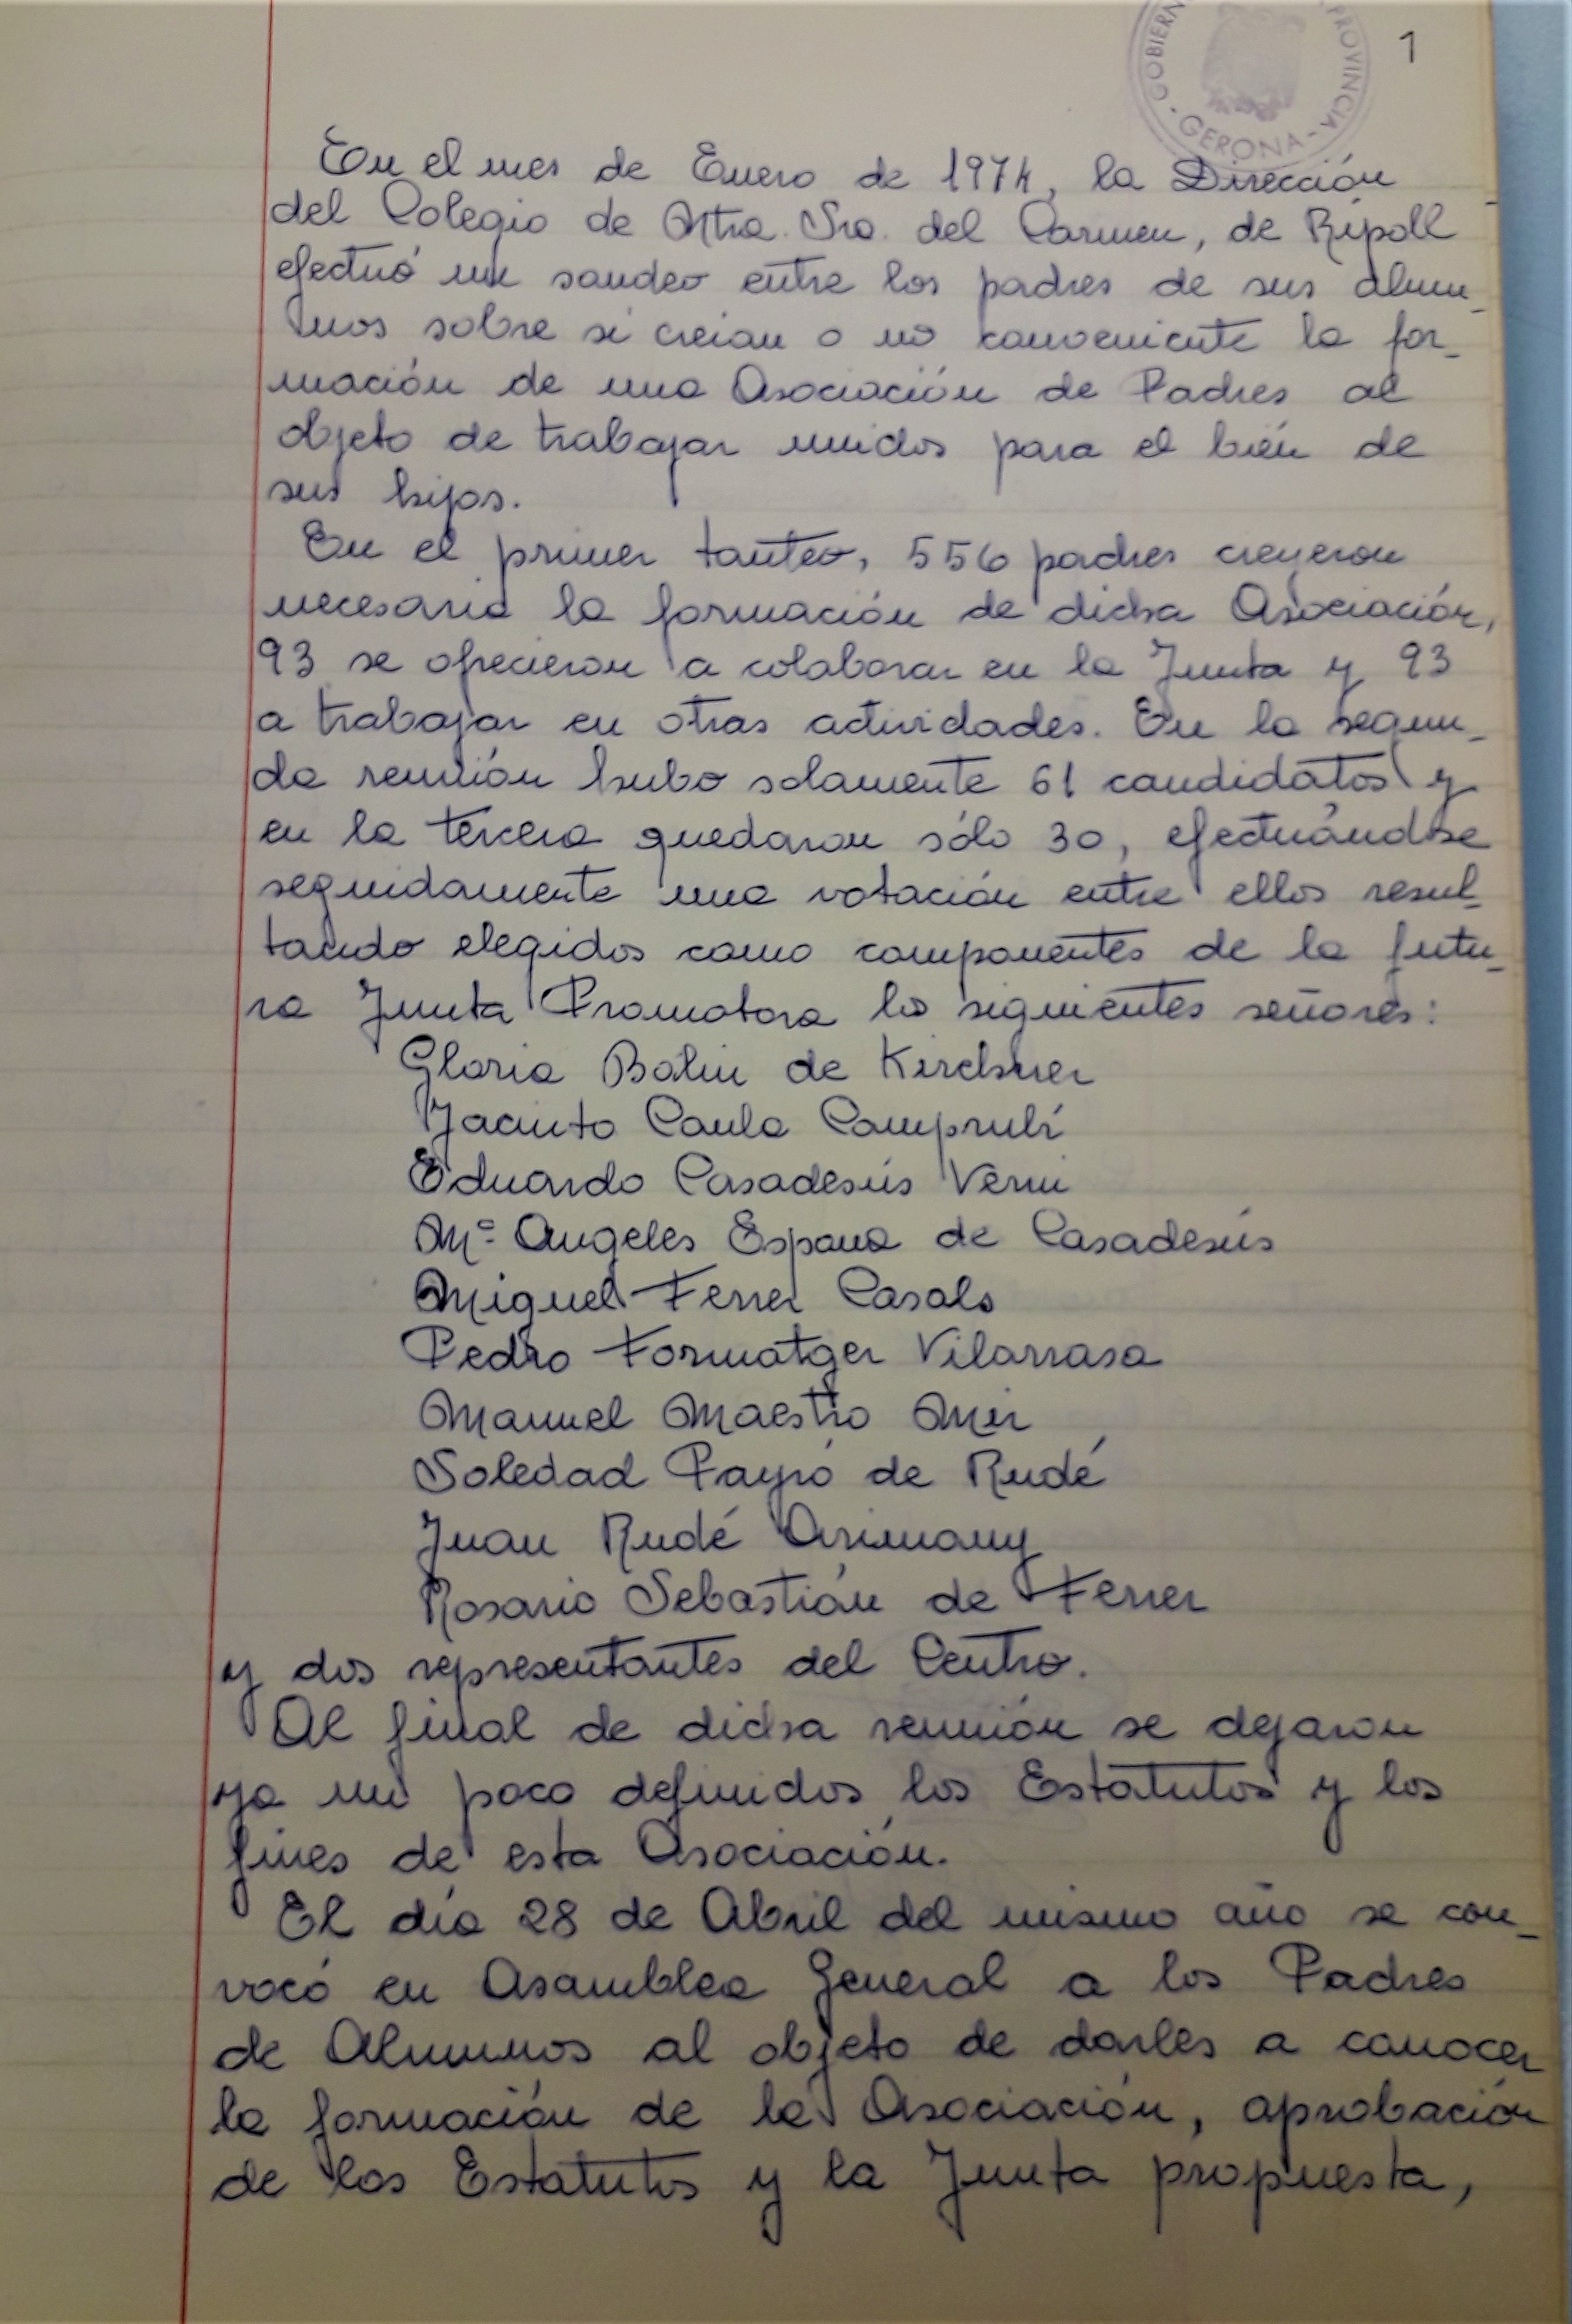 GOBIERNO
PROVINCIA
- GERONA -
1
En el mes de Enero de 1974, la Dirección
del Colegio de Ntra. Sra. del Carmen, de Ripoll
efectuó un sondeo entre los padres de sus alum_
nos sobre si creian o no conveniente la for_
mación de una Asociación de Padres al
objeto de trabajar unidos para el bién de
sus hijos.
En el primer tanteo, 556 padres creyeron
necesaria la formación de dicha Asociación,
93 se ofrecieron a colaborar en la Junta y 93
a trabajar en otras actividades. En la segun_
da reunión hubo solamente 61 candidatos y
en la tercera quedaron sólo 30, efectuándose
seguidamente una votación entre ellos resul_
tando elegidos como componentes de la futu_
ra Junta Promotora los siguientes señores:
Gloria Bolin de Kirchner
Jacinto Caula Camprubí
Eduardo Casadesús Verni
Mª Angeles Espana de Casadesús
Miguel Ferrer Casals
Pedro Formatger Vilarrasa
Manuel Maestro Mir
Soledad Payró de Rudé
Juan Rudé Arimany
Rosario Sebastián de Ferrer
y dos representantes del Centro.
Al final de dicha reunión se dejaron
ya un poco definidos los Estatutos y los
fines de esta Asociación.
El día 28 de Abril del mismo año se con_
vocó en Asamblea General a los Padres
de Alumnos al objeto de darles a conocer
la formación de la Asociación, aprobación
de los Estatutos y la Junta propuesta,